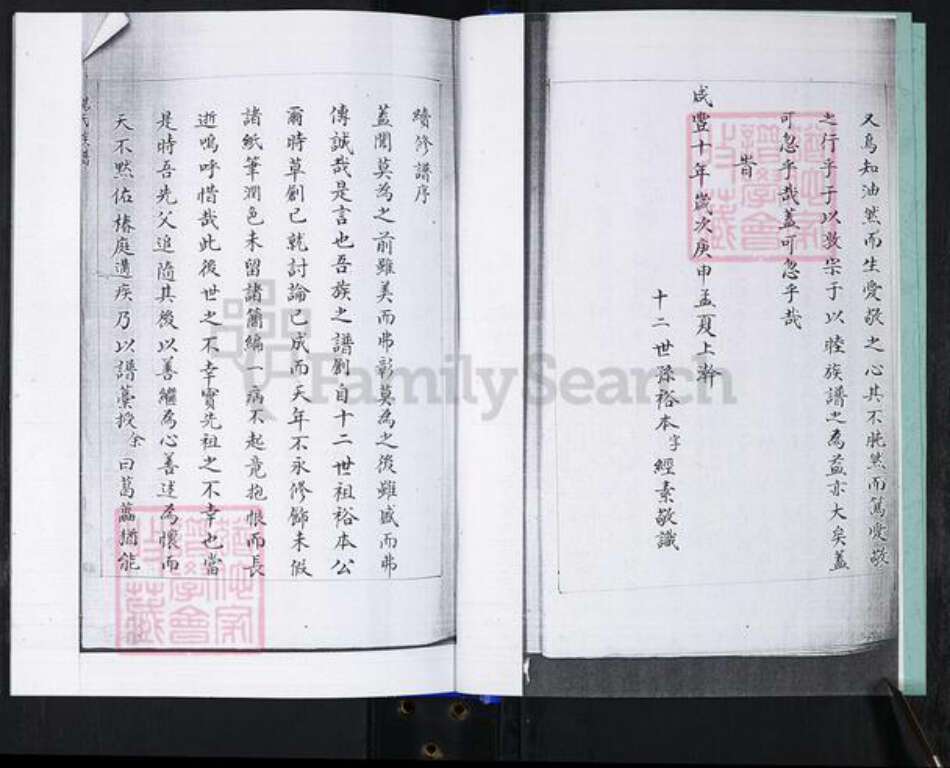 又烏知油然而生愛敬之心其不肫然而篤愛敬
之行乎于以敦宗于以睦族譜之為益亦大矣蓋
可忽乎哉蓋可忽乎哉
旹
咸豐十年歲次庚申孟夏上澣
十二世孫裕本字經素敬識
續修譜序
蓋聞莫為之前雖美而弗彰莫為之後雖盛而弗
傳誠哉是言也吾族之譜創自十二世祖裕本公
爾時草創已就討論已成而天年不永修飾未假
諸紙筆潤色未留諸簡編一病不起竟抱恨而長
逝嗚呼惜哉此後世之不幸實先祖之不幸也當
是時吾先父追隨其後以善繼為心善述為懷而
天不默佑椿庭遘疾乃以譜藁授余曰葛藟猶能
氏族譜
FamilySearch